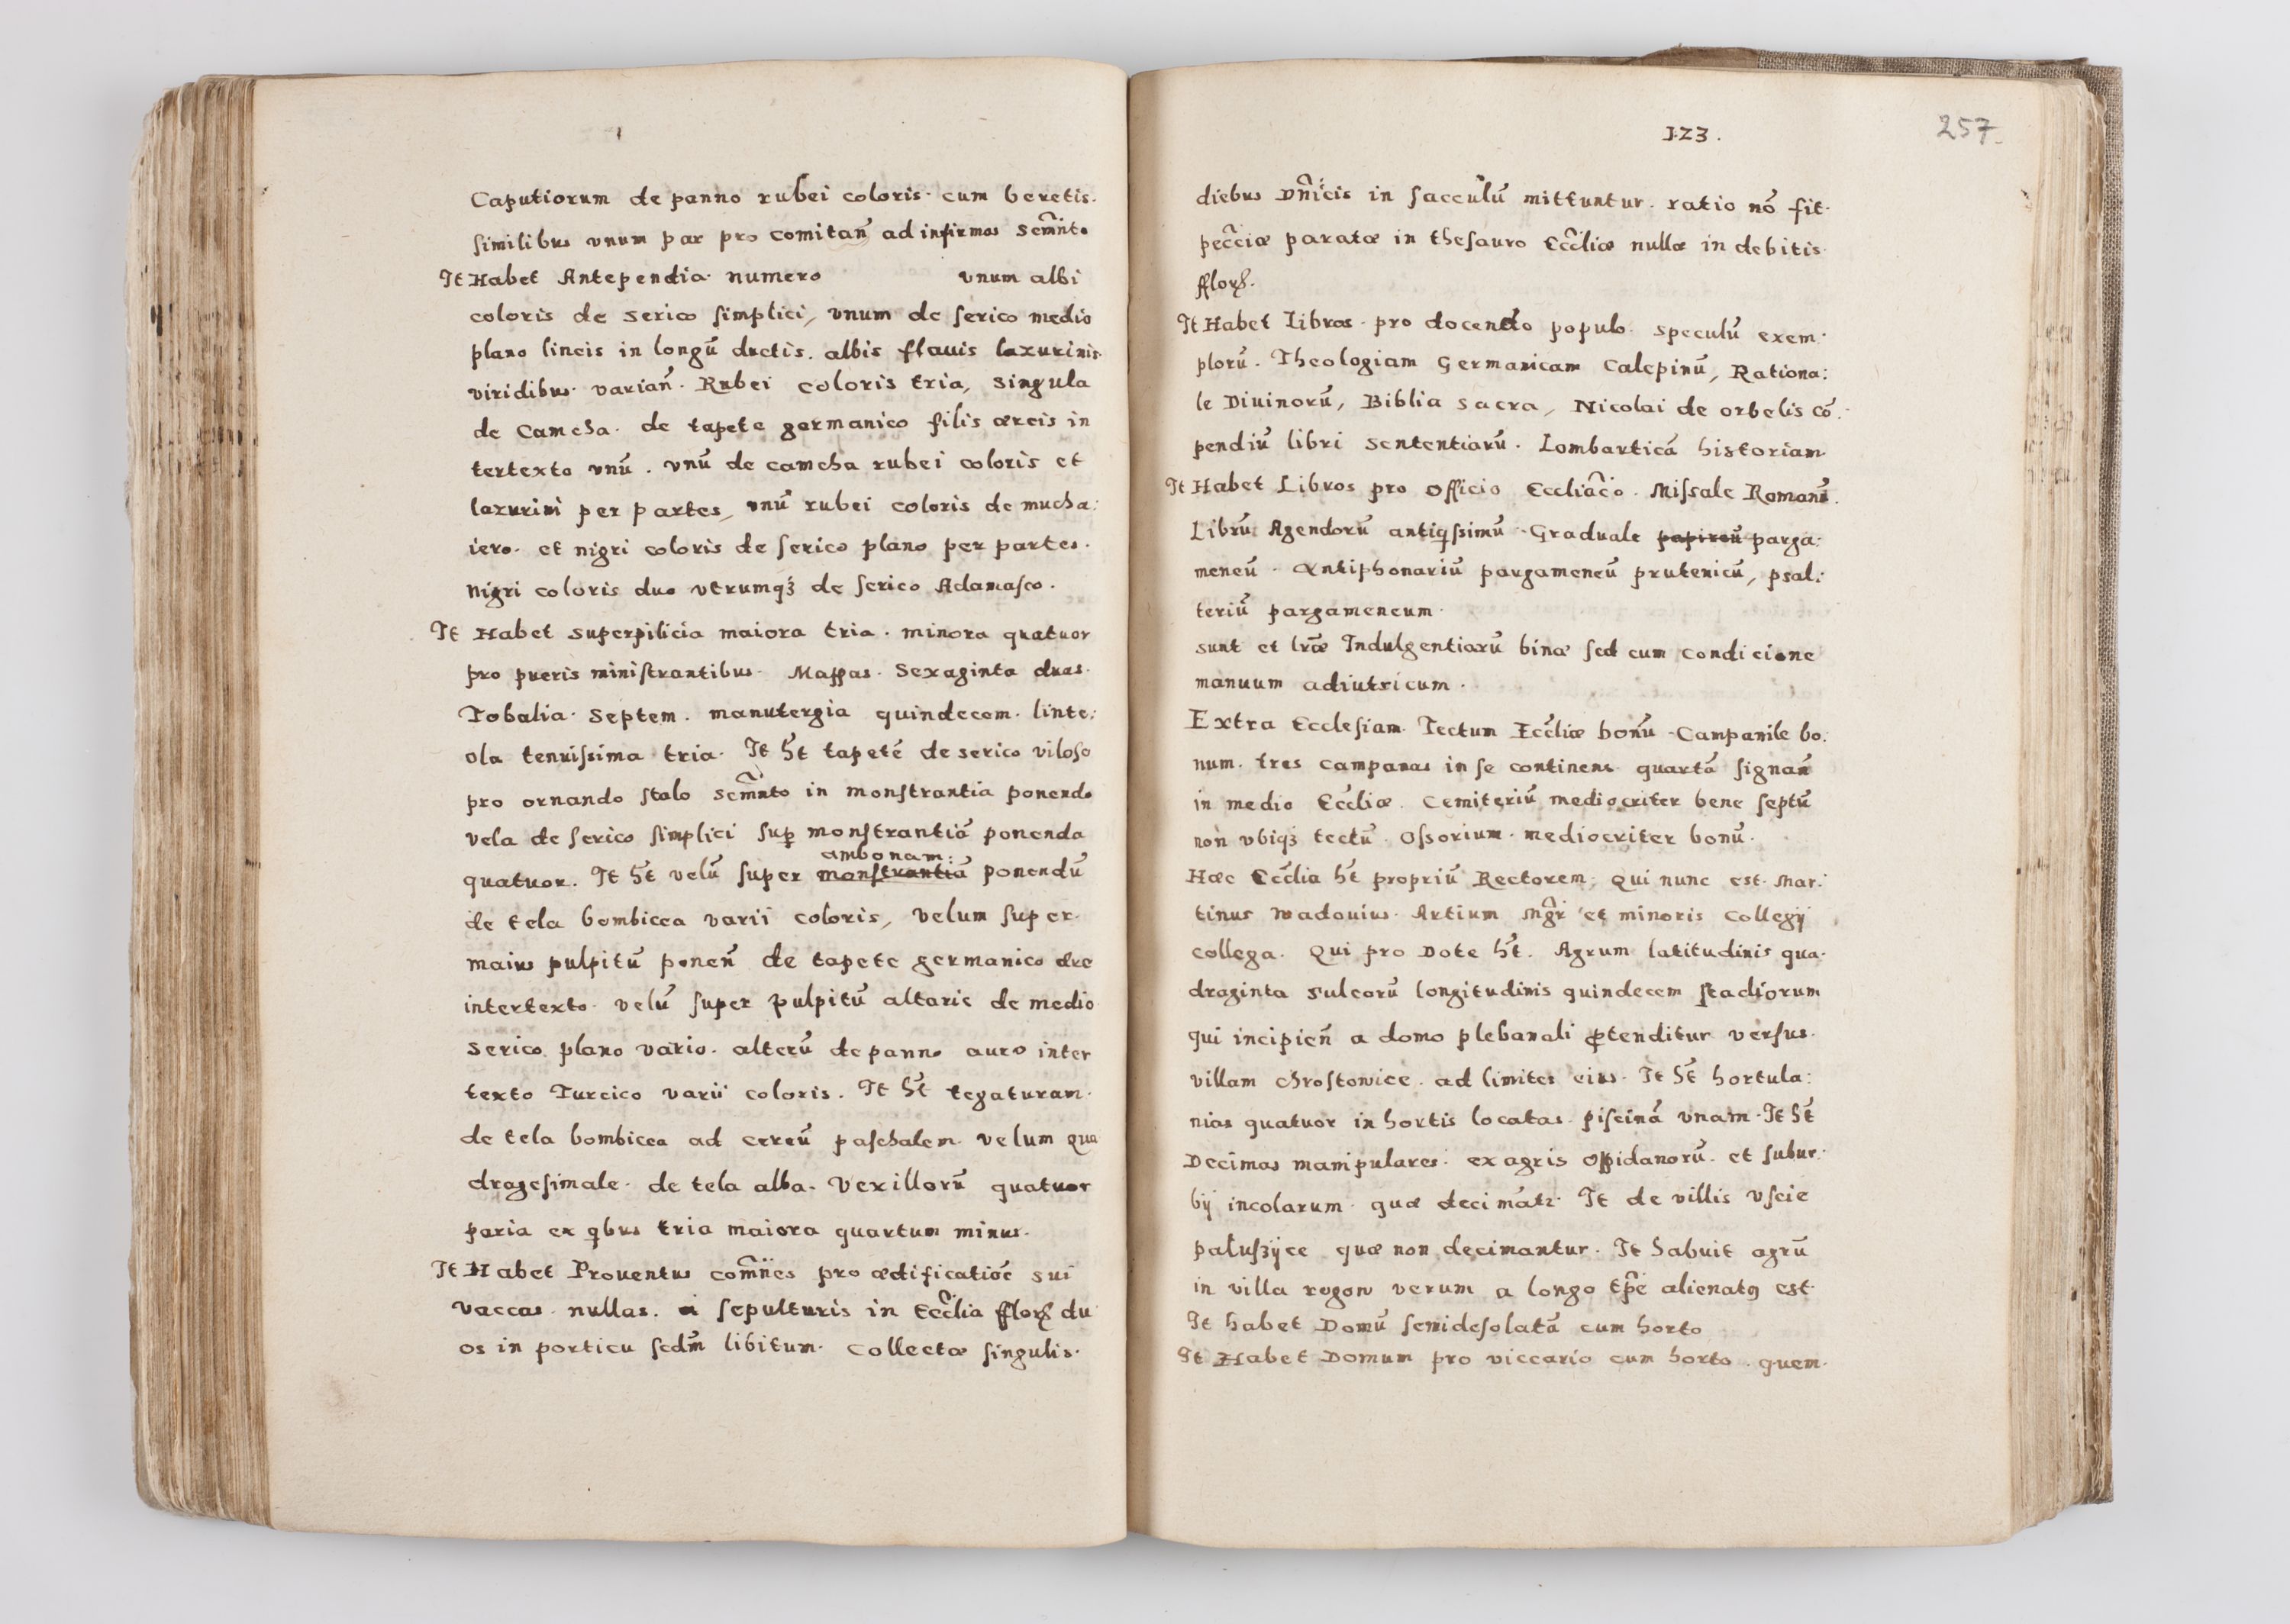 Caputiorum de panno rubei coloris. cum beretis.
ſimilibus vnum par pro comitañ ad infirmos Scm̃nto
It Habet Antependia numero vnum albi
coloris de Serico ſimplici, vnum de ſerico medio
plano lineis in longū ductis. albis flauis lazurinis.
viridibus. variañ. Rubei coloris tria, Singula
de Camcha. de tapete germanico filis æreis in
tertexto vnū. vnū de camcha rubei coloris et
lazurini per partes, vnū rubei coloris de mucha:
iero. et nigri coloris de ſerico plano per partes.
Nigri coloris duo vtrumqȝ de ſerico Adamaſco.
It Habet Superpilicia maiora tria. minora quatuor
pro pueris miniſtrantibus. Mappas. Sexaginta duas.
Tobalia. Septem. manutergia quindecem. linte:
ola tenuiſsima tria. It ht̃ tapetē de serico viloſo
pro ornando ſtalo Scm̃nto in monſtrantia ponendo
vela de ſerico ſimplici ſuꝑ monſtrantiā ponenda
ambonam.
quatuor. It ht̃ velū ſuper monſtrantiā ponendū
de tela bombicea varii coloris, velum ſuper.
maius pulpitū poneñ de tapete germanico ære
intertexto. velū ſuper pulpitū altaris de medio
Serico plano vario. alterū de panno auro inter
texto Turcico varii coloris. It ht̃ tegaturam.
de tela bombicea ad cereū paſchalem. velum qua
drageſimale. de tela alba. Vexillorū quatuor
paria ex qbus tria maiora quartum minus.
It Habet Prouentus com̃nes pro ædificatiōe sui
vaccas nullas. a ſepulturis in Eccl̃ia fflorꝫ du
os in porticu ſedm̃ libitum. Collectæ ſingulis.
123.
257
diebus Dñicis in ſacculū mittuntur. ratio nō fit.
pecc̃iæ paratæ in theſauro Eccl̃iæ nullæ in debitis.
fflorꝫ.
It Habet Libros pro docendo populo. Speculū exem.
plorū. Theologiam Germanicam Calepinū, Rationa:
le Diuinorū, Biblia Sacra, Nicolai de orbelis cō.
pendiū libri Sententiarū. Lombarticā historiam.
It Habet Libros pro Officio Eccliac̃o. Miſsale Romanū.
Librū Agendorū antiqſsimū. Graduale papireū parga:
meneū. Antiphonariū pargameneū prutenicū, psal:
teriū pargameneum.
Sunt et lr̃æ Indulgentiarū binæ ſed cum condicione
manuum adiutricum.
Extra Ecclesiam. Tectum Eccl̃iæ bonū. Campanile bo:
num. tres campanas in ſe continens quartā ſignañ
in medio Eccl̃iæ. Cemiteriū mediocriter bene ſeptū
non vbiqȝ tectū. Oſsorium. mediocriter bonū.
Hæc Eccl̃ia ht̃ propriū Rectorem, Qui nunc est. Mar:
tinus Wadouius. Artium Mgr̃ et minoris Collegij
collega. Qui pro Dote ht̃. Agrum latitudinis qua.
draginta Sulcorū longitudinis quindecem ſtadiorum
qui incipieñ a domo plebanali ꝓtenditur verſus.
villam Chroſtowice. ad limites eius. It ht̃ hortula:
nias quatuor in hortis locatas. piſcinā vnam. It ht̃
Decimas manipulares. ex agris Oppidanorū. et ſubur:
bij incolarum. quæ decimātr. It de villis vſcie
paluſzijce quæ non decimantur. It habuit agrū
in villa rogow verum a longo tp̃e alienatꝯ est.
It habet Domū ſemideſolatā cum horto
It Habet Domum pro viccario cum horto. quem.